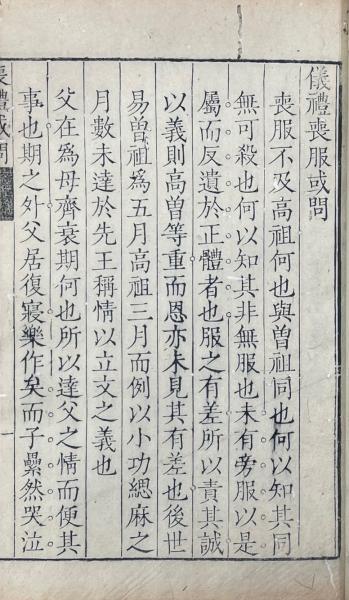 儀禮喪服或問
喪服不及高祖何也與曽祖同也何以知其同
無可殺也何以知其非無服也未有旁服以是
屬而反遺於正體者也服之有差所以責其誠
以義則高曽等重而恩亦未見其有差也後世
易曽祖爲五月高祖三月而例以小功緦麻之
月數未達於先王稱情以立文之義也
父在爲母齊衰期何也所以達父之情而便其
事也期之外父居復寢樂作矣而子纍然哭泣
喪禮或問
一